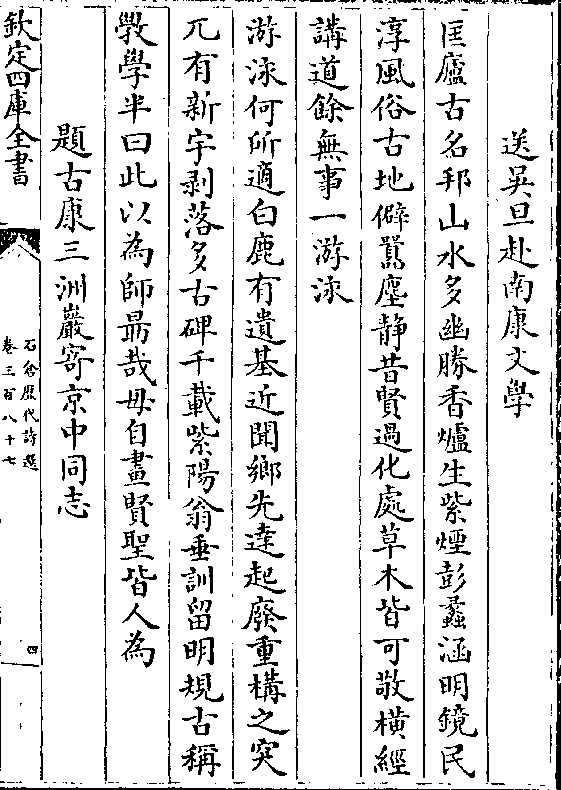 送吳旦赴南康文學
匡廬古名邦山水多幽勝香爐生紫煙彭蠡涵明鏡民
淳風俗古地僻囂塵静昔賢過化處草木皆可敬横經
講道餘無事一游泳
游泳何所適白鹿有遺基近聞鄉先達起廢重構之突
兀有新宇剥落多古碑千載紫陽翁垂訓留明規古稱
斆學半曰此以為師朂哉毋自畫賢聖皆人為
題古康三洲巖寄京中同志
欽定四庫全書
石倉歷代詩選
卷三百八十七
四